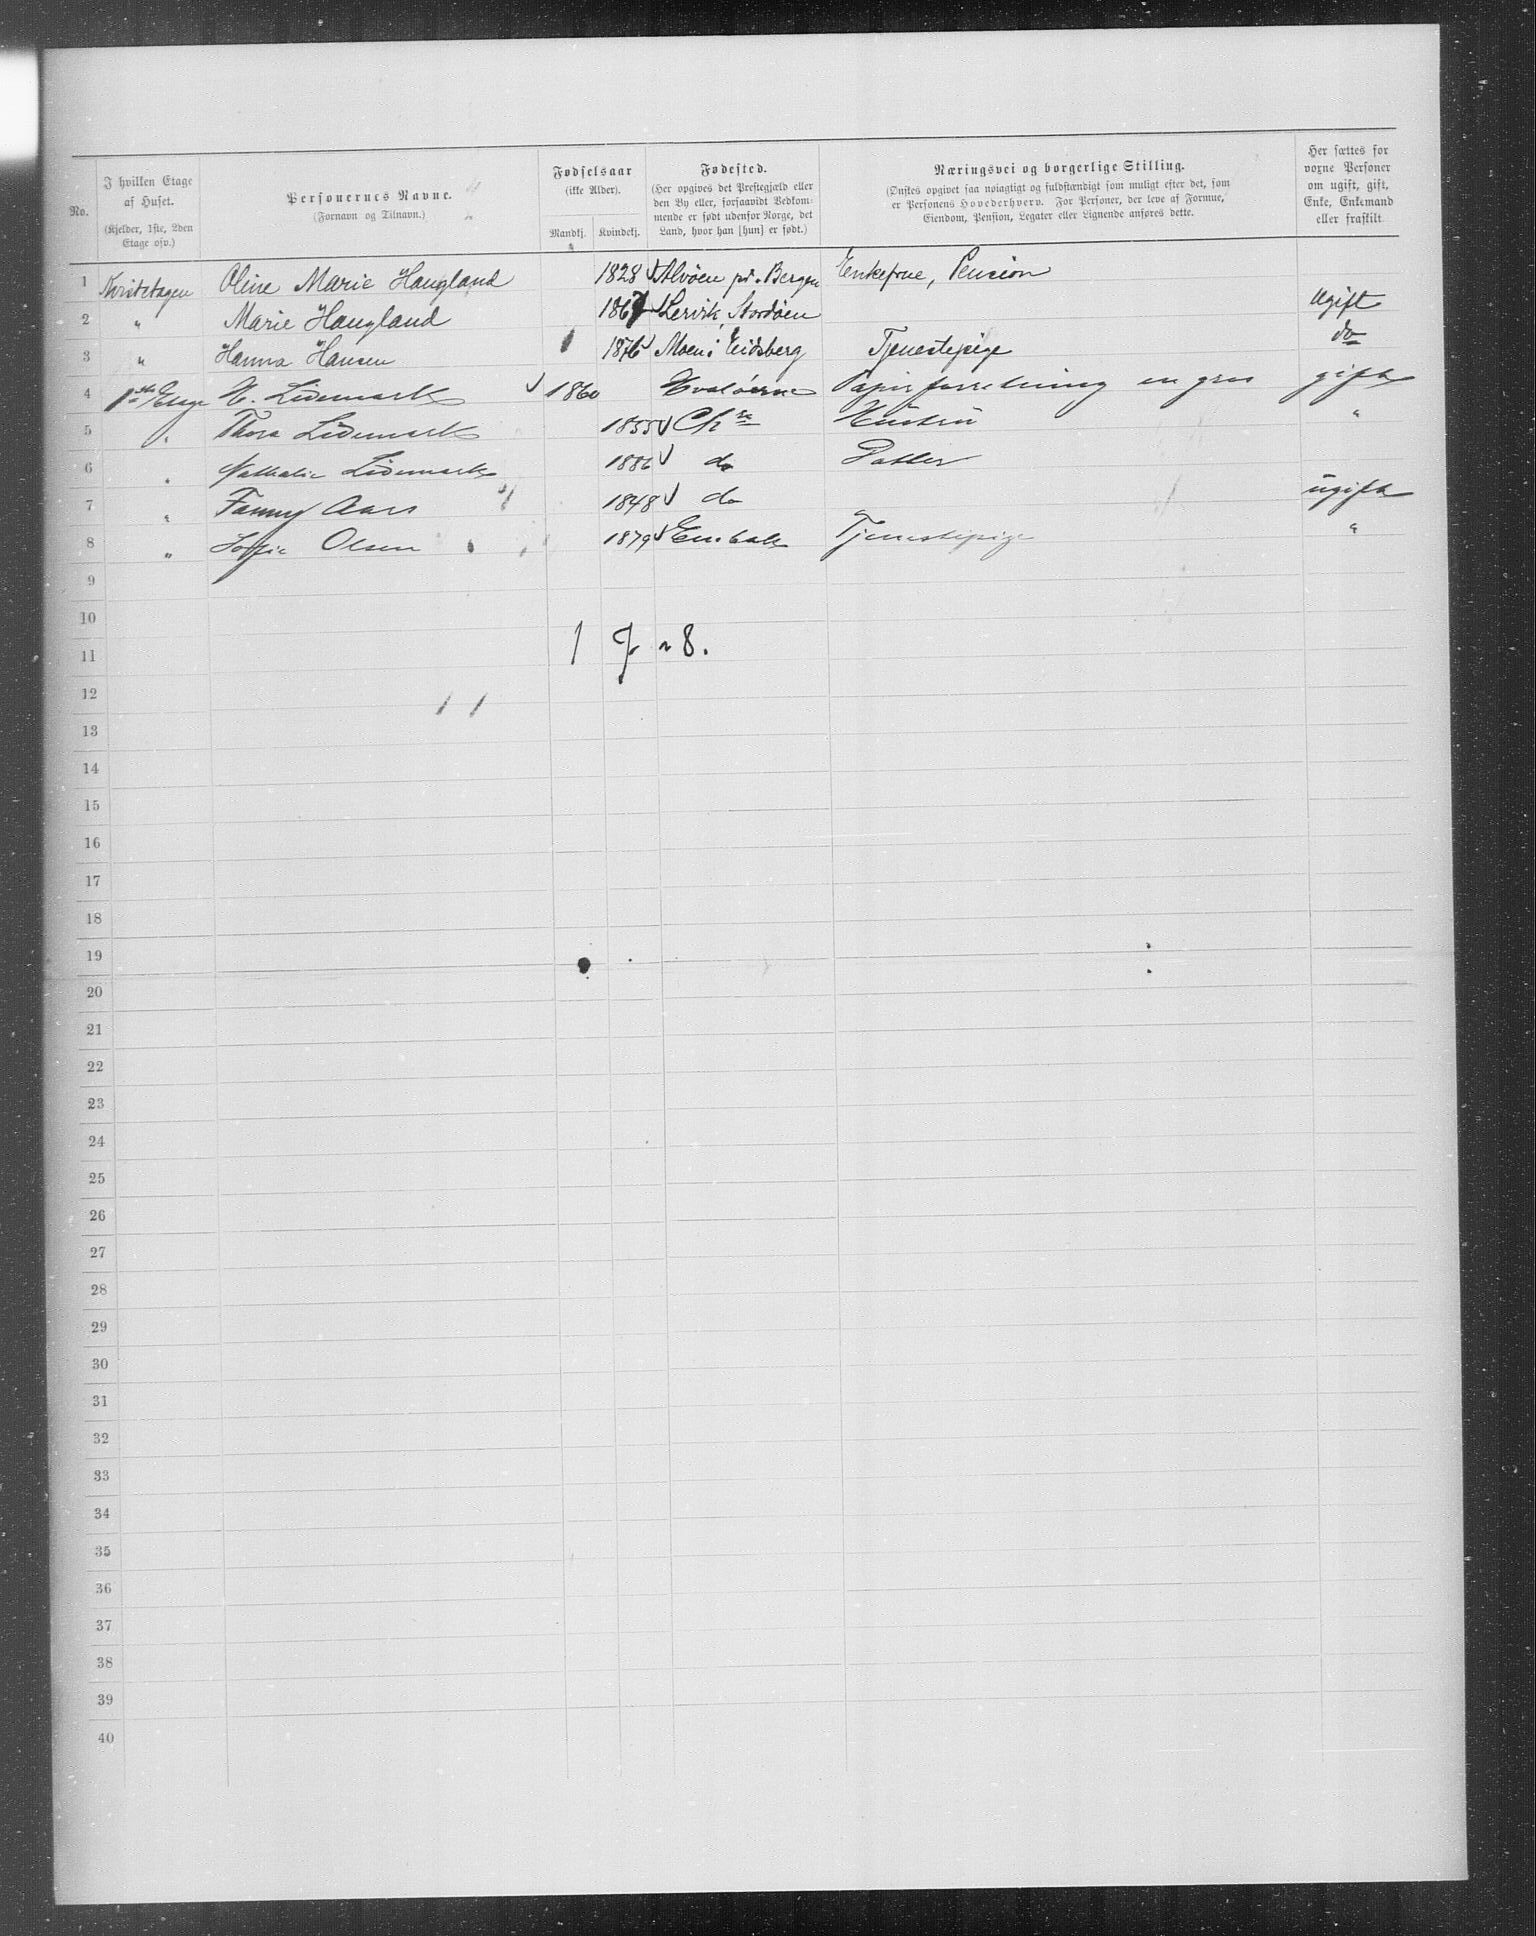 No.
I hvilken Etage af Huset. (Kjelder, 1ste, 2den Etage osv.)
Personernes Navne. (Fornavn og Tilnavn.)
Fødselsaar (ikke Alder). Mandkj. Kvindekj.
Fødested. (Her opgives det Prestegjæld eller den By eller, forsaavidt Vedkommende er født udenfor Norge, det Land, hvor han [hun] er født.)
Næringsvei og borgerlige Stilling. (Ønskes opgivet saa nøiagtigt og fuldstændigt som muligt efter det, som er Personens Hovederhverv. For Personer, der leve af Formue, Eiendom, Pension, Legater eller Lignende anføres dette.
Her sættes for voxne Personer om ugift, gift, Enke, Enkemand eller fraskilt
1 Oline Marie Haugland 1828 Alvøen pr. Bergen Enkefrue, Pension
2 " Marie Haugland Lervik, Stordøen Ugift
3 " Hanna Hansen 1876 Moen i Eidsberg Tjenestepige do
4 1ste Etage Lidemark 1860 Hvaløerne Papirforretning en gros gift
5 " Thora Lidemark 1855 Chra Hustru "
6 " Nathalie Lidemark 1886 do Datter
7 " Fanny Aars 1848 do ugift
8 " Sofie Olsen 1879 Tjenestepige "
9
10
11 1 7 = 8.
12
13
14
15
16
17
18
19
20
21
22
23
24
25
26
27
28
29
30
31
32
33
34
35
36
37
38
39
40